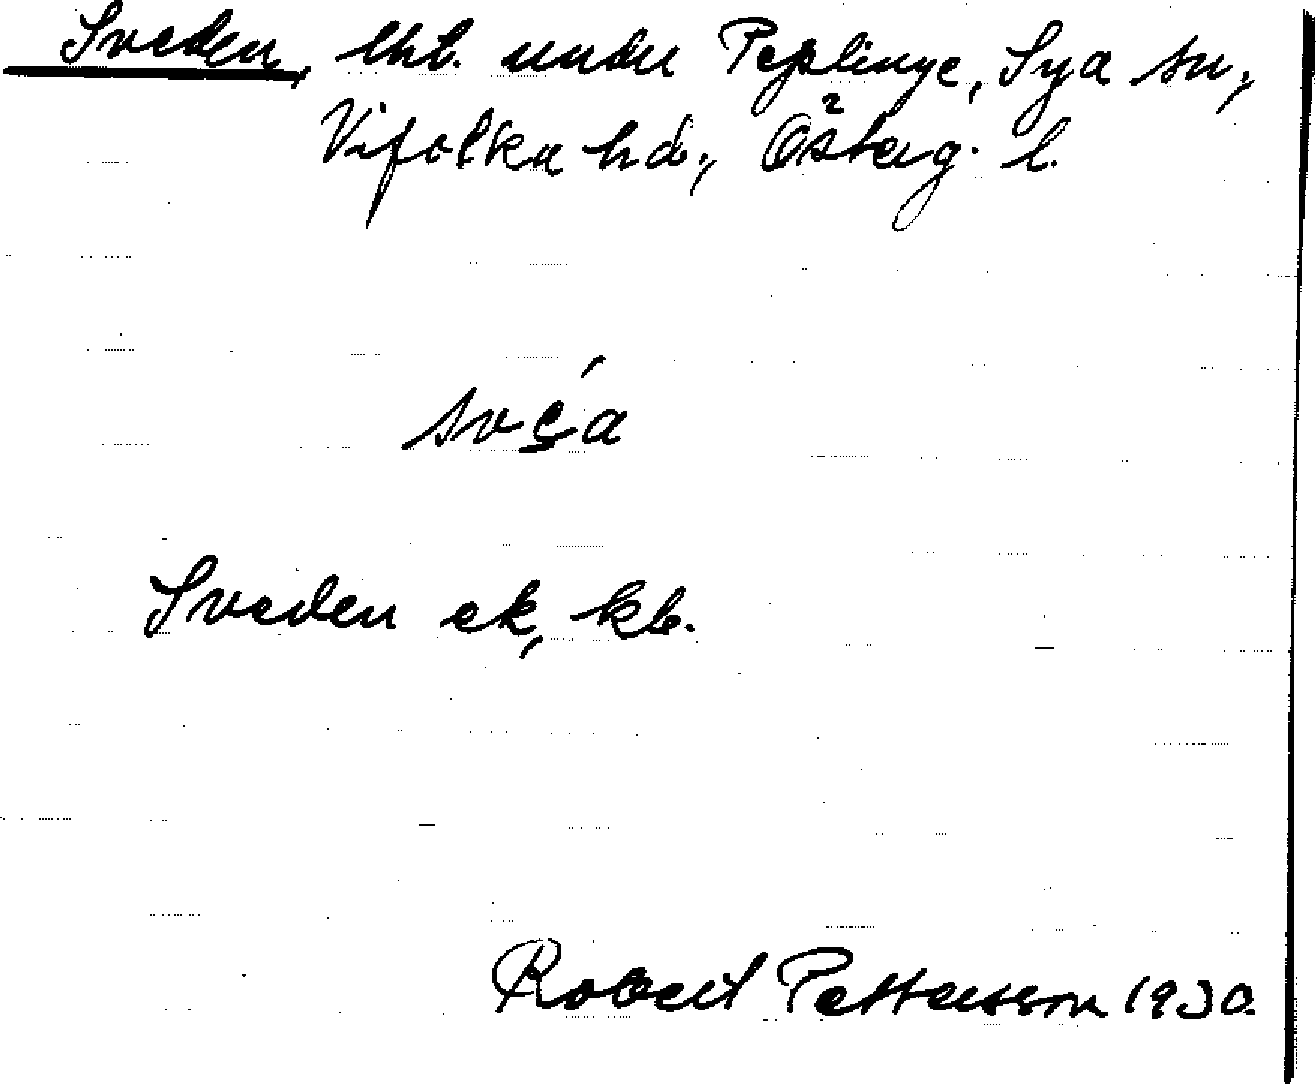 Sveden, lht. under Peplinge, Sya sn,
Vifolka hd., Österg. l.
svęˊa
Sveden ek, kb.
Robert Petterson 1930.